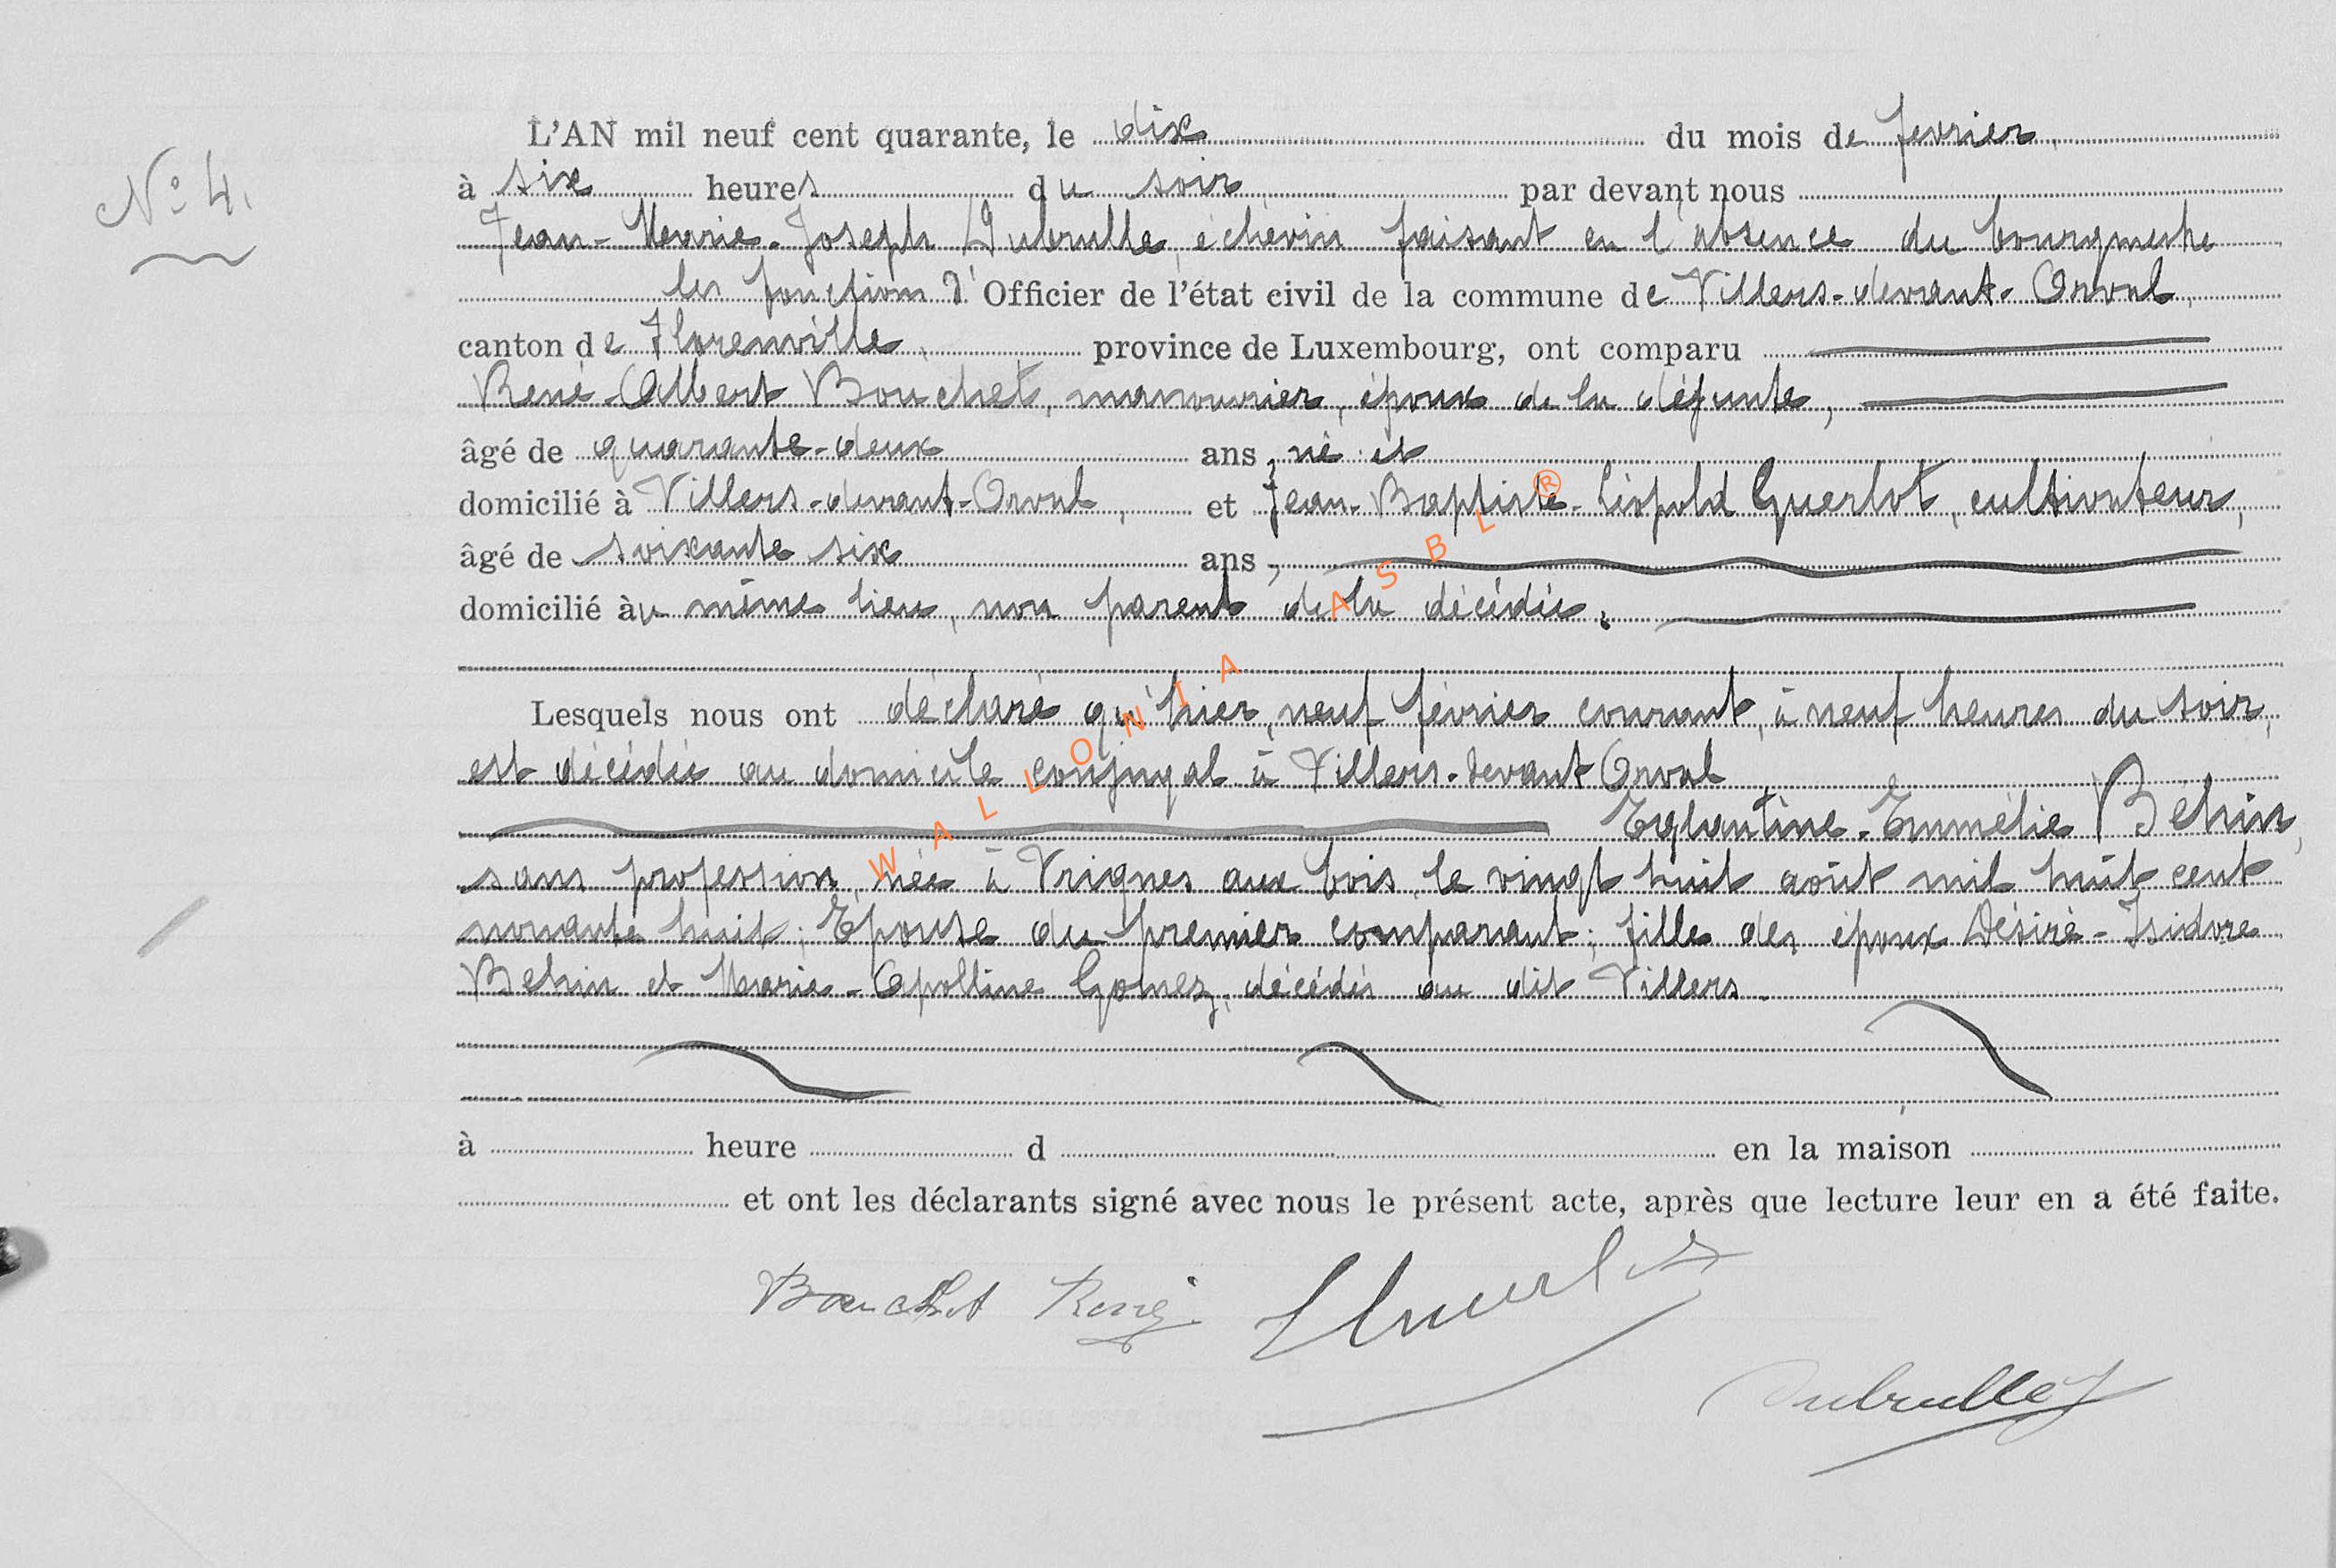 L'AN mil neuf cent quarante, le dix du mois de fevrier,
N° 4.
à six heures du soir par devant nous
Jean-Marie-Joseph Dubrulle, échevin faisant en l'absence du bourgmestre
les fonctions d'Officier de l'état civil de la commune de Villers-devant-Orval,
canton de Florenville, province de Luxembourg, ont comparu
René-Albert Bouchet, manouvrier, époux de la défunte,
âgé de quarante-deux ans, né et
domicilié à Villers-devant-Orval, et Jean-Baptiste-Léopold Guerlot, cultivateur,
âgé de soixante six ans,
domicilié au même lieu, non parent de la décédée.
Lesquels nous ont déclaré qu'hier, neuf février courant, à neuf heures du soir,
est décédée au domicile conjugal à Villers-devant Orval
Eglantine-Emmélie Béhin,
sans profession, née à Vrignes aux bois, le vingt huit août mil huit cent
nonante huit; Épouse du premier comparant; fille des époux Désiré-Isidore
Behin et Marie-Apolline Gomez, décédés au dit Villers.
à heure d en la maison
et ont les déclarants signé avec nous le présent acte, après que lecture leur en a été faite.
Bouchet René
Dubrulle J
WALLONIA ASBL ®